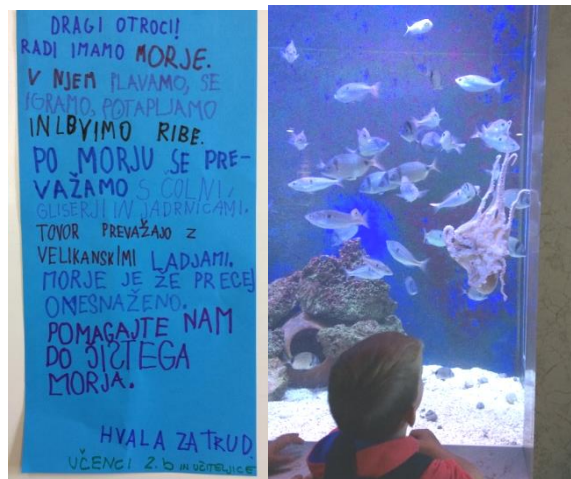 DRAGI OTROCI!
RADI IMAMO MORJE.
V NJEM PLAVAMO, SE
IGRAMO, POTAPLJAMO
IN LOVIMO RIBE.
PO MORJU SE PRE-
VAŽAMO S ČOLNI,
GLISERJI IN JADRNICAMI.
TOVOR PREVAŽAJO Z
VELIKANSKIMI LADJAMI.
MORJE JE ŽE PRECEJ
ONESNAŽENO.
POMAGAJTE NAM
DO ČIŠTEGA
MORJA.
HVALA ZA TRUD
UČENCI 2.b IN UČITELJICE